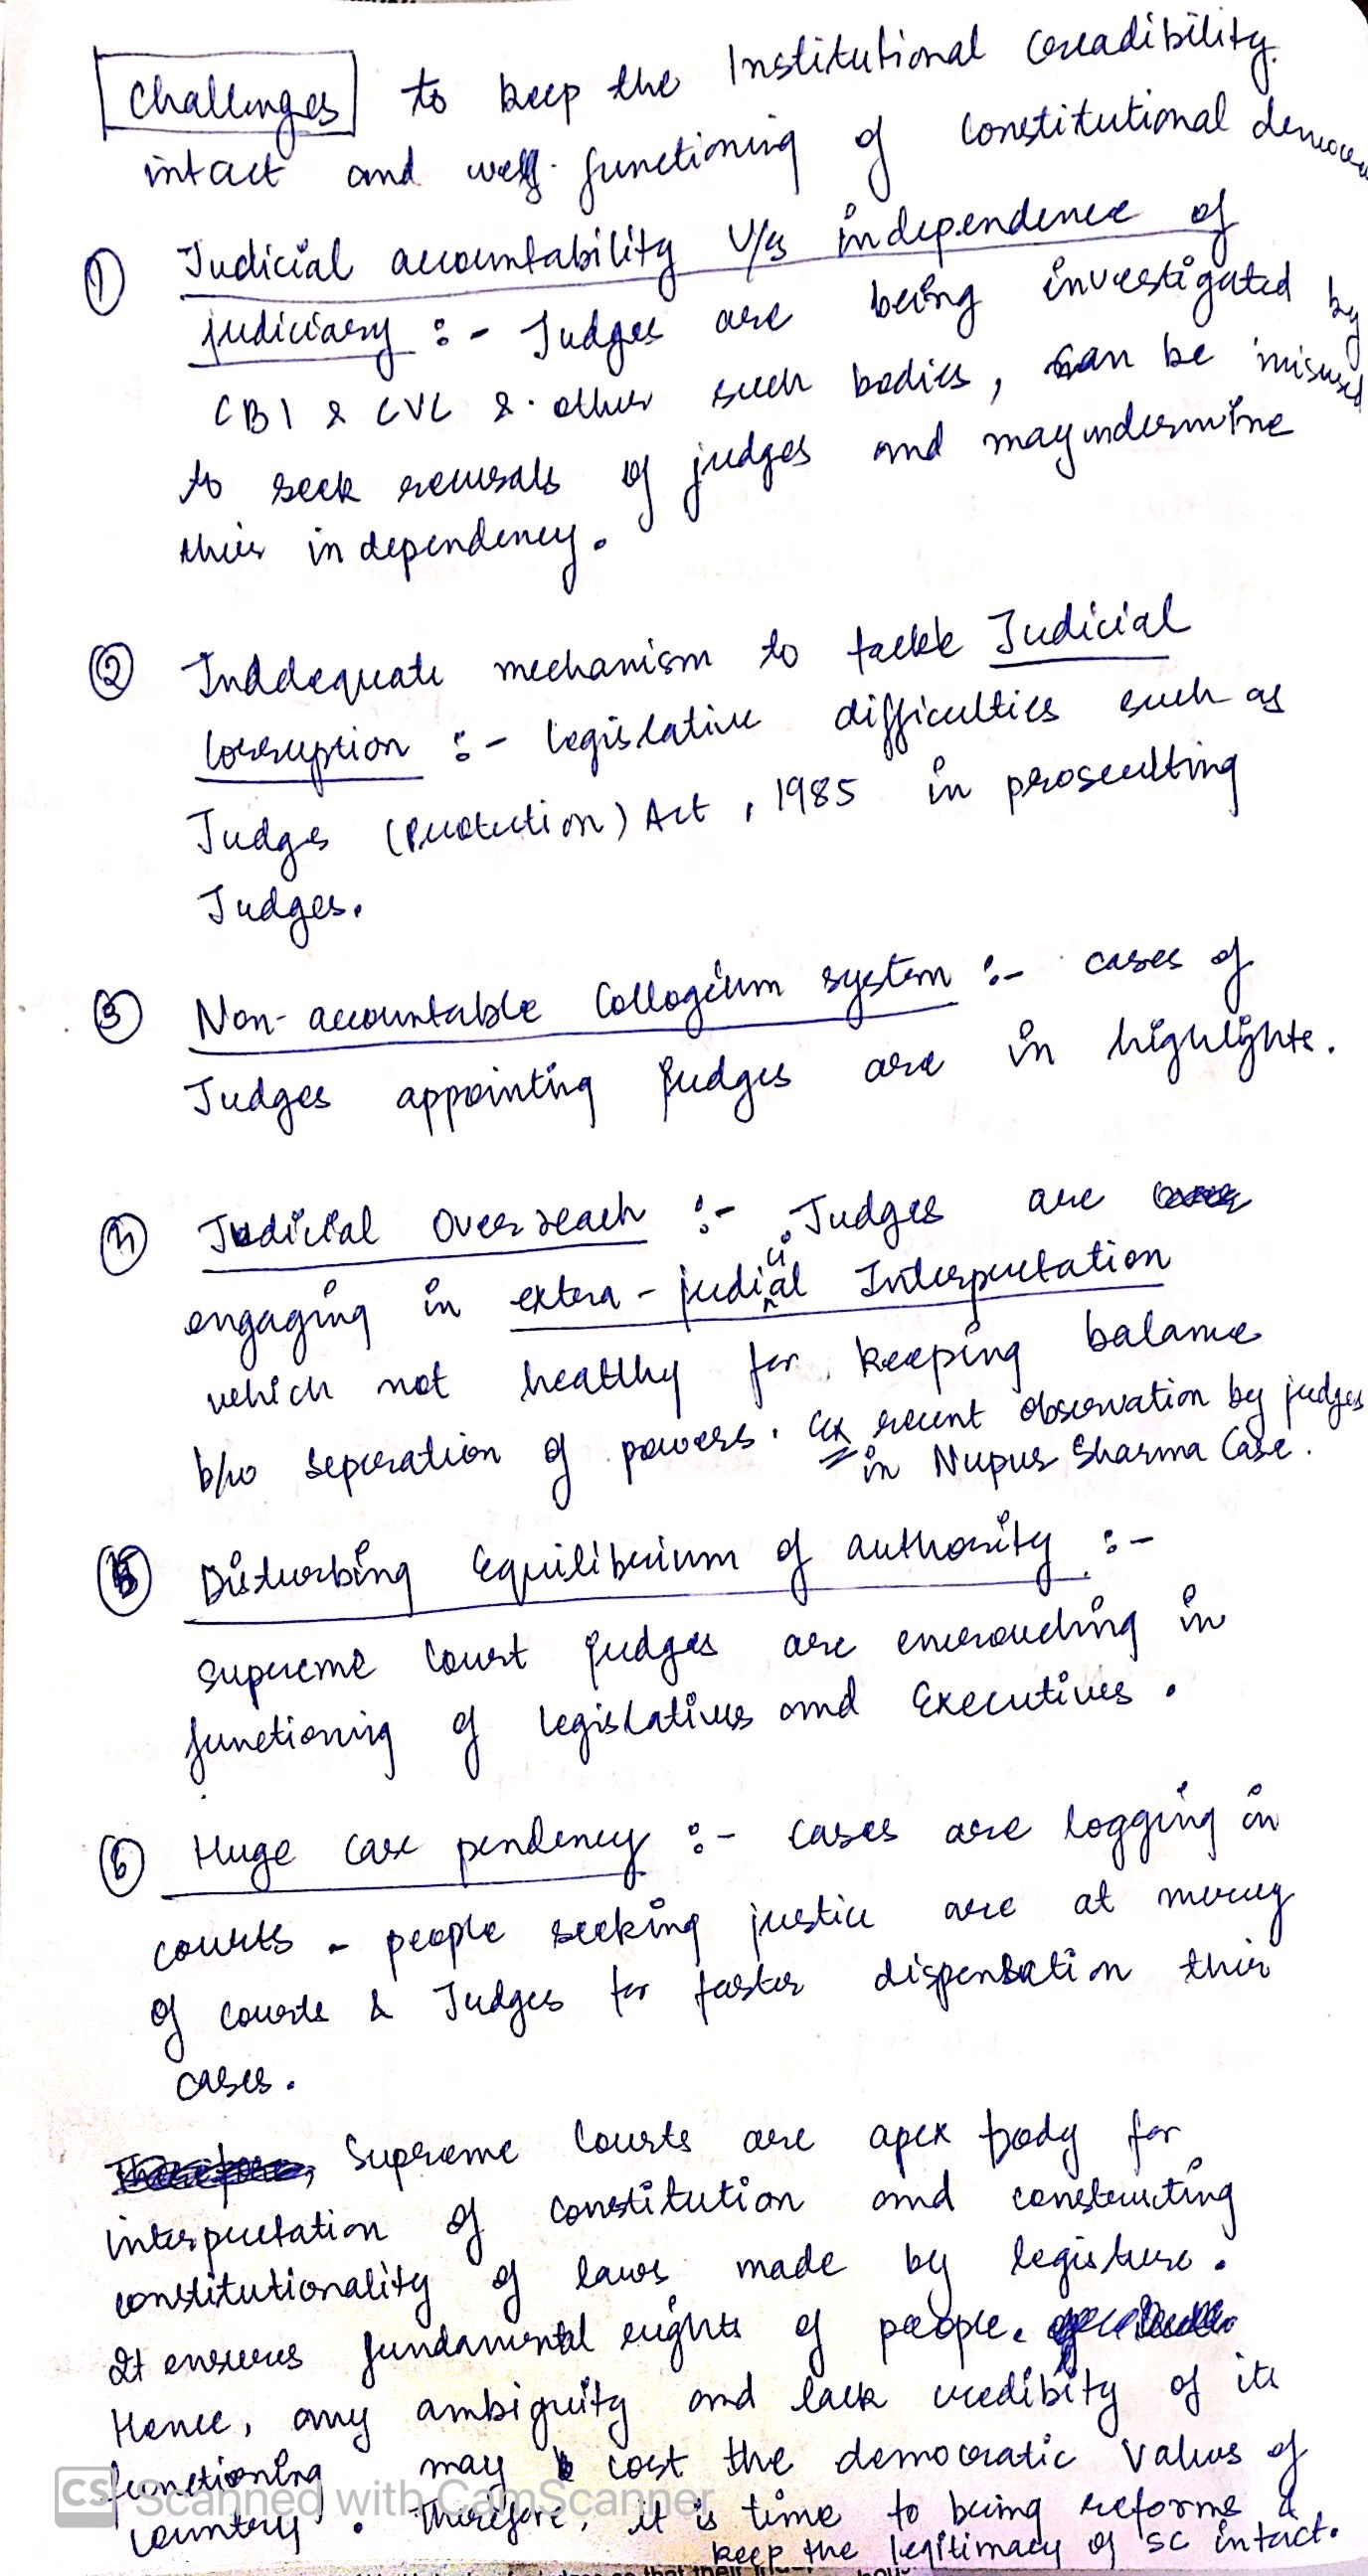 Challenges to keep the Institutional Creadibility
intact and well functioning of constitutional
① Judicial accountability v/s independence of
judiciary :- Judges are being investigated by
CBI & CVC & other such bodies, can be misused
to seek recusals of judges and may undermine
their independency.
② Inadequate mechanism to tackle Judicial
Corruption :- legislative difficulties such as
Judges (Protection) Act, 1985 in proseculting
Judges.
③ Non-accountable Collogium system :- cases of
Judges appointing judges are in highlights.
④ Judicial Overreach :- Judges are
engaging in extra-judicial Interpretation
which not healthy for keeping balance
b/w seperation of powers. Ex recent observation by judges
in Nupur Sharma Case.
⑤ Disturbing Equilibrium of authority :-
Supreme Court judges are encrouching in
functioning of legislatives and Executives.
⑥ Huge case pendency :- cases are logging in
courts - people seeking justice are at mercy
of courts & Judges for faster dispensation their
cases.
Supreme Courts are apex body for
interpretation of constitution and constructing
constitutionality of laws made by legisture.
It ensures fundamental rights of people.
Hence, any ambiguity and lack credibity of its
functioning may cost the democratic values of
country. Therefore, it is time to bring reforms &
keep the legitimacy of SC intact.
CS Scanned with CamScanner